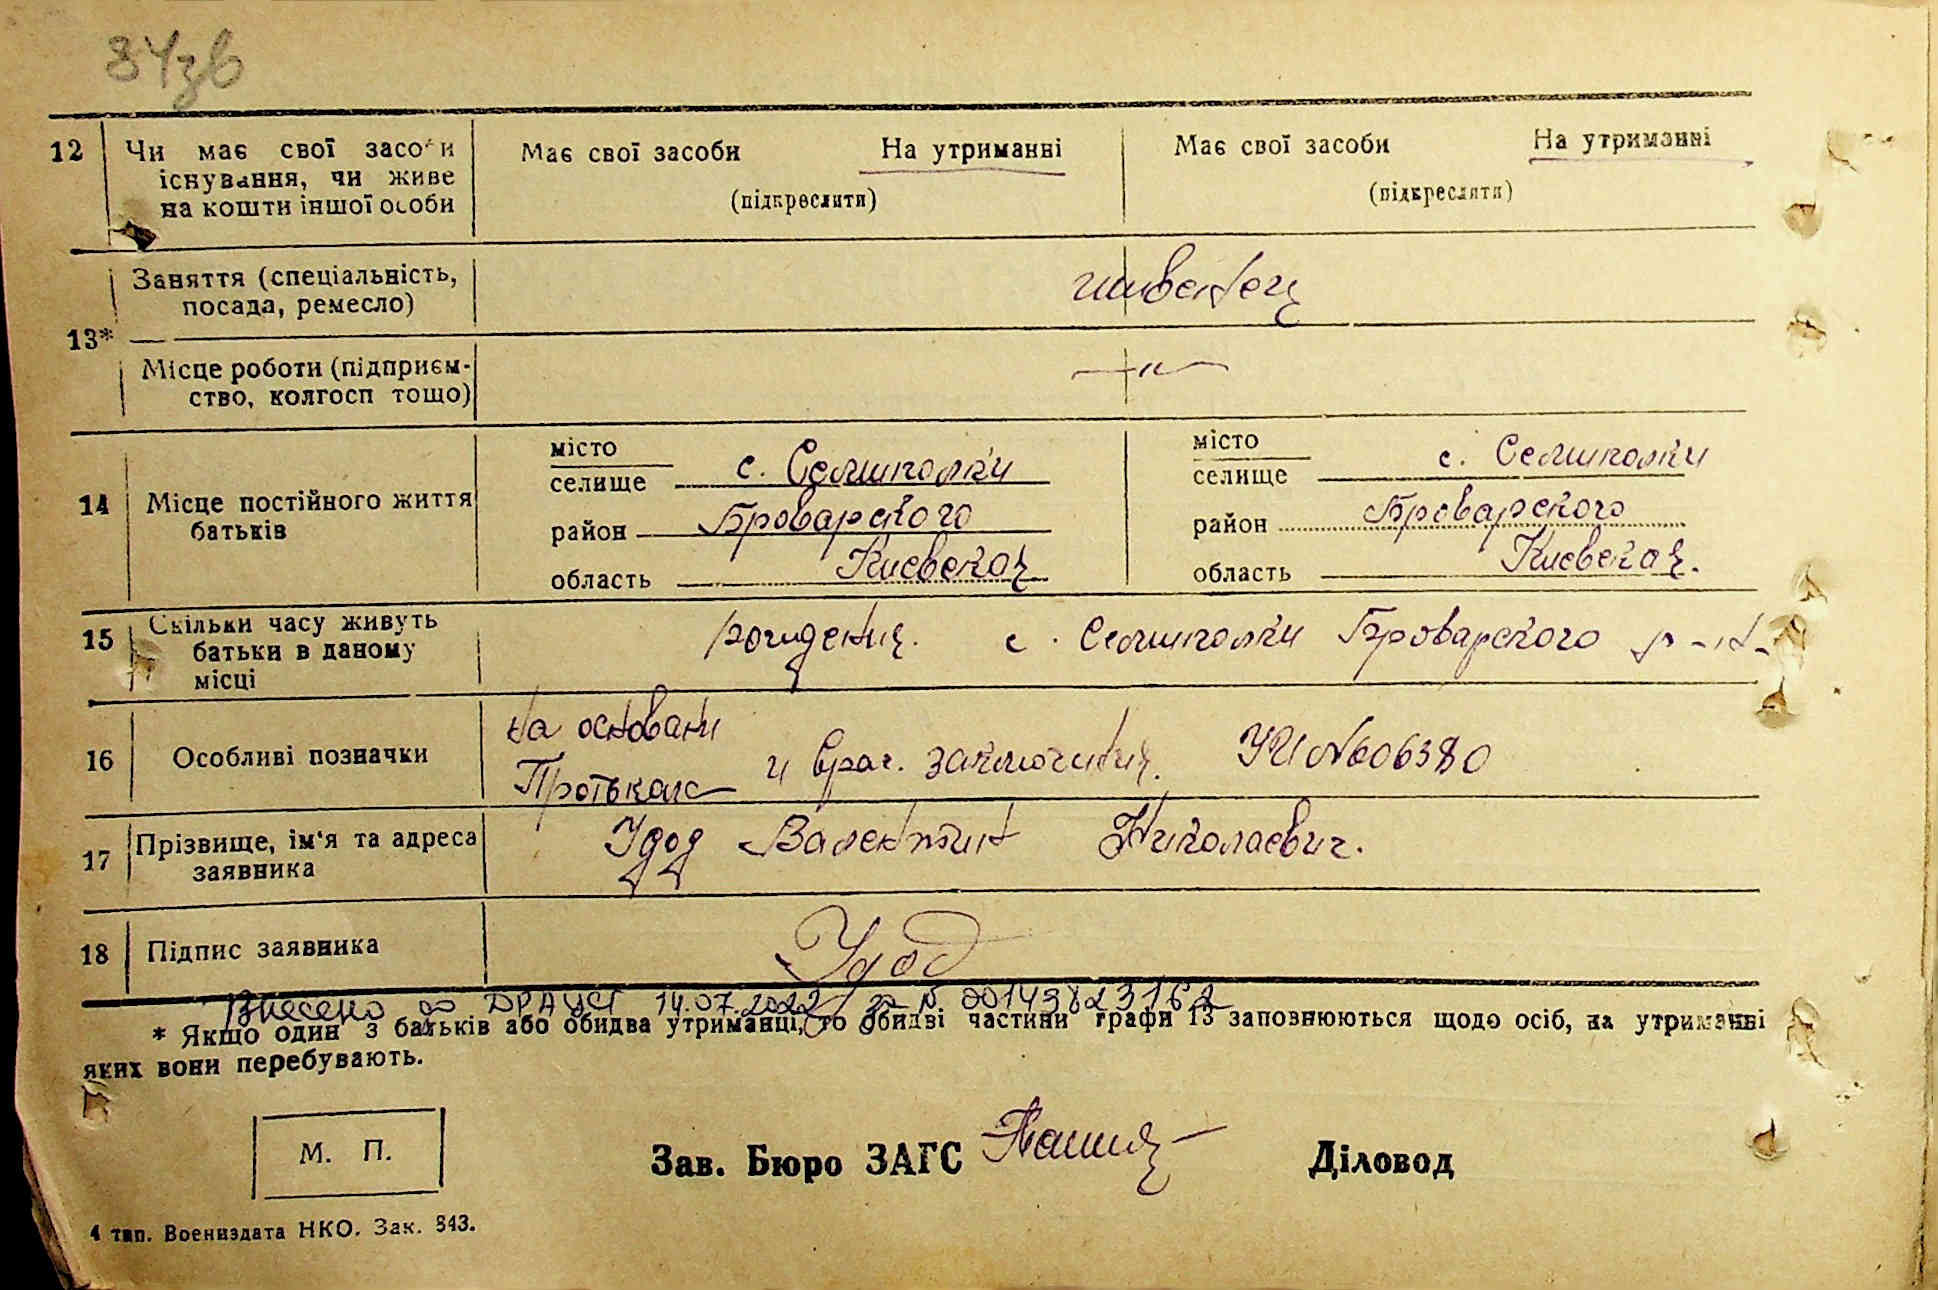 84зв
12 Чи має свої засоби Має свої засоби На утриманні Має свої засоби На утриманні
існування, чи живе
на кошти іншої особи (підкреслити) (підкреслити)
Заняття (спеціальність,
посада, ремесло) иждевенец
13*
Місце роботи (підприєм- —"—
ство, колгосп тощо)
місто місто
селище с. Семиполки селище с. Семиполки
14 Місце постійного життя
батьків район Броварского район Броварского
область Киевская область Киевская.
15 Скільки часу живуть
батьки в даному рождения. с. Семиполки Броварского р-н-
місці
на основани
16 Особливі позначки Протокола и врач. заключения. УИ №606380
17 Прізвище, ім'я та адреса
заявника Удод Валентин Николаевич.
18 Підпис заявника Удод
Внесено до ДРАЦСГ 14.07.2022 за № 00149823162
* Якщо один з батьків або обидва утриманці, то обидві частини графи 13 заповнюються щодо осіб, на утриманні
яких вони перебувають.
М. П.
Зав. Бюро ЗАГС Діловод
4 тип. Воениздата НКО. Зак. 843.